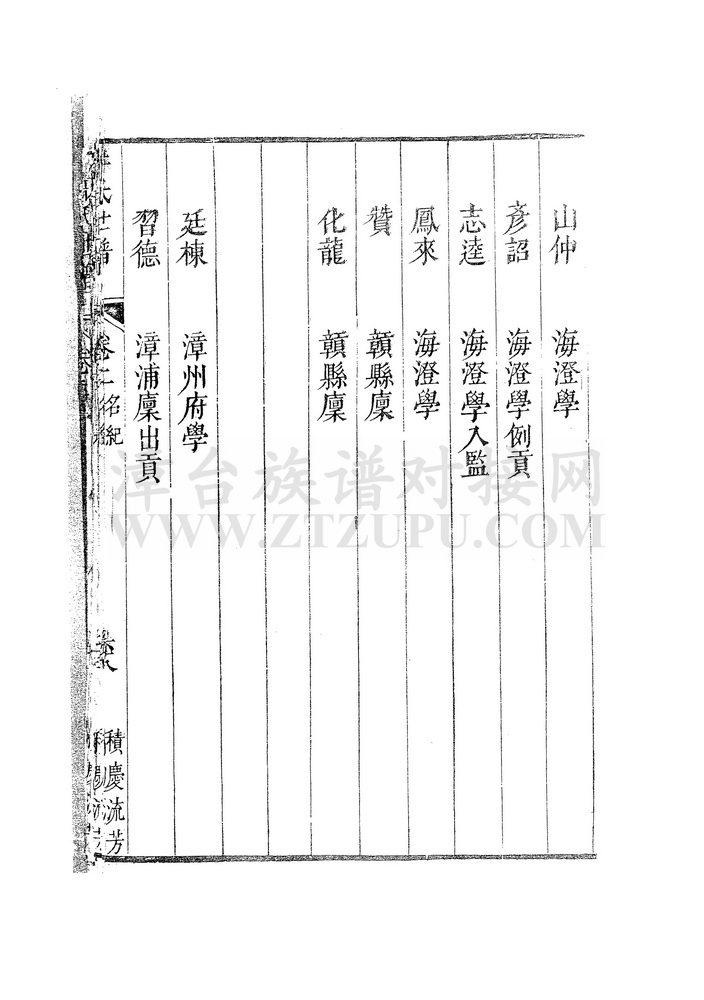 山仲 海澄學
彥詔 海澄學例貢
志逵 海澄學入監
鳳來 海澄學
贊 贛縣廩
化龍 贛縣廩
廷棟 漳州府學
習德 漳浦廩出貢
氏世譜 卷二 名紀
積慶流芳
漳台族谱对接网
WWW.ZTZUPU.COM